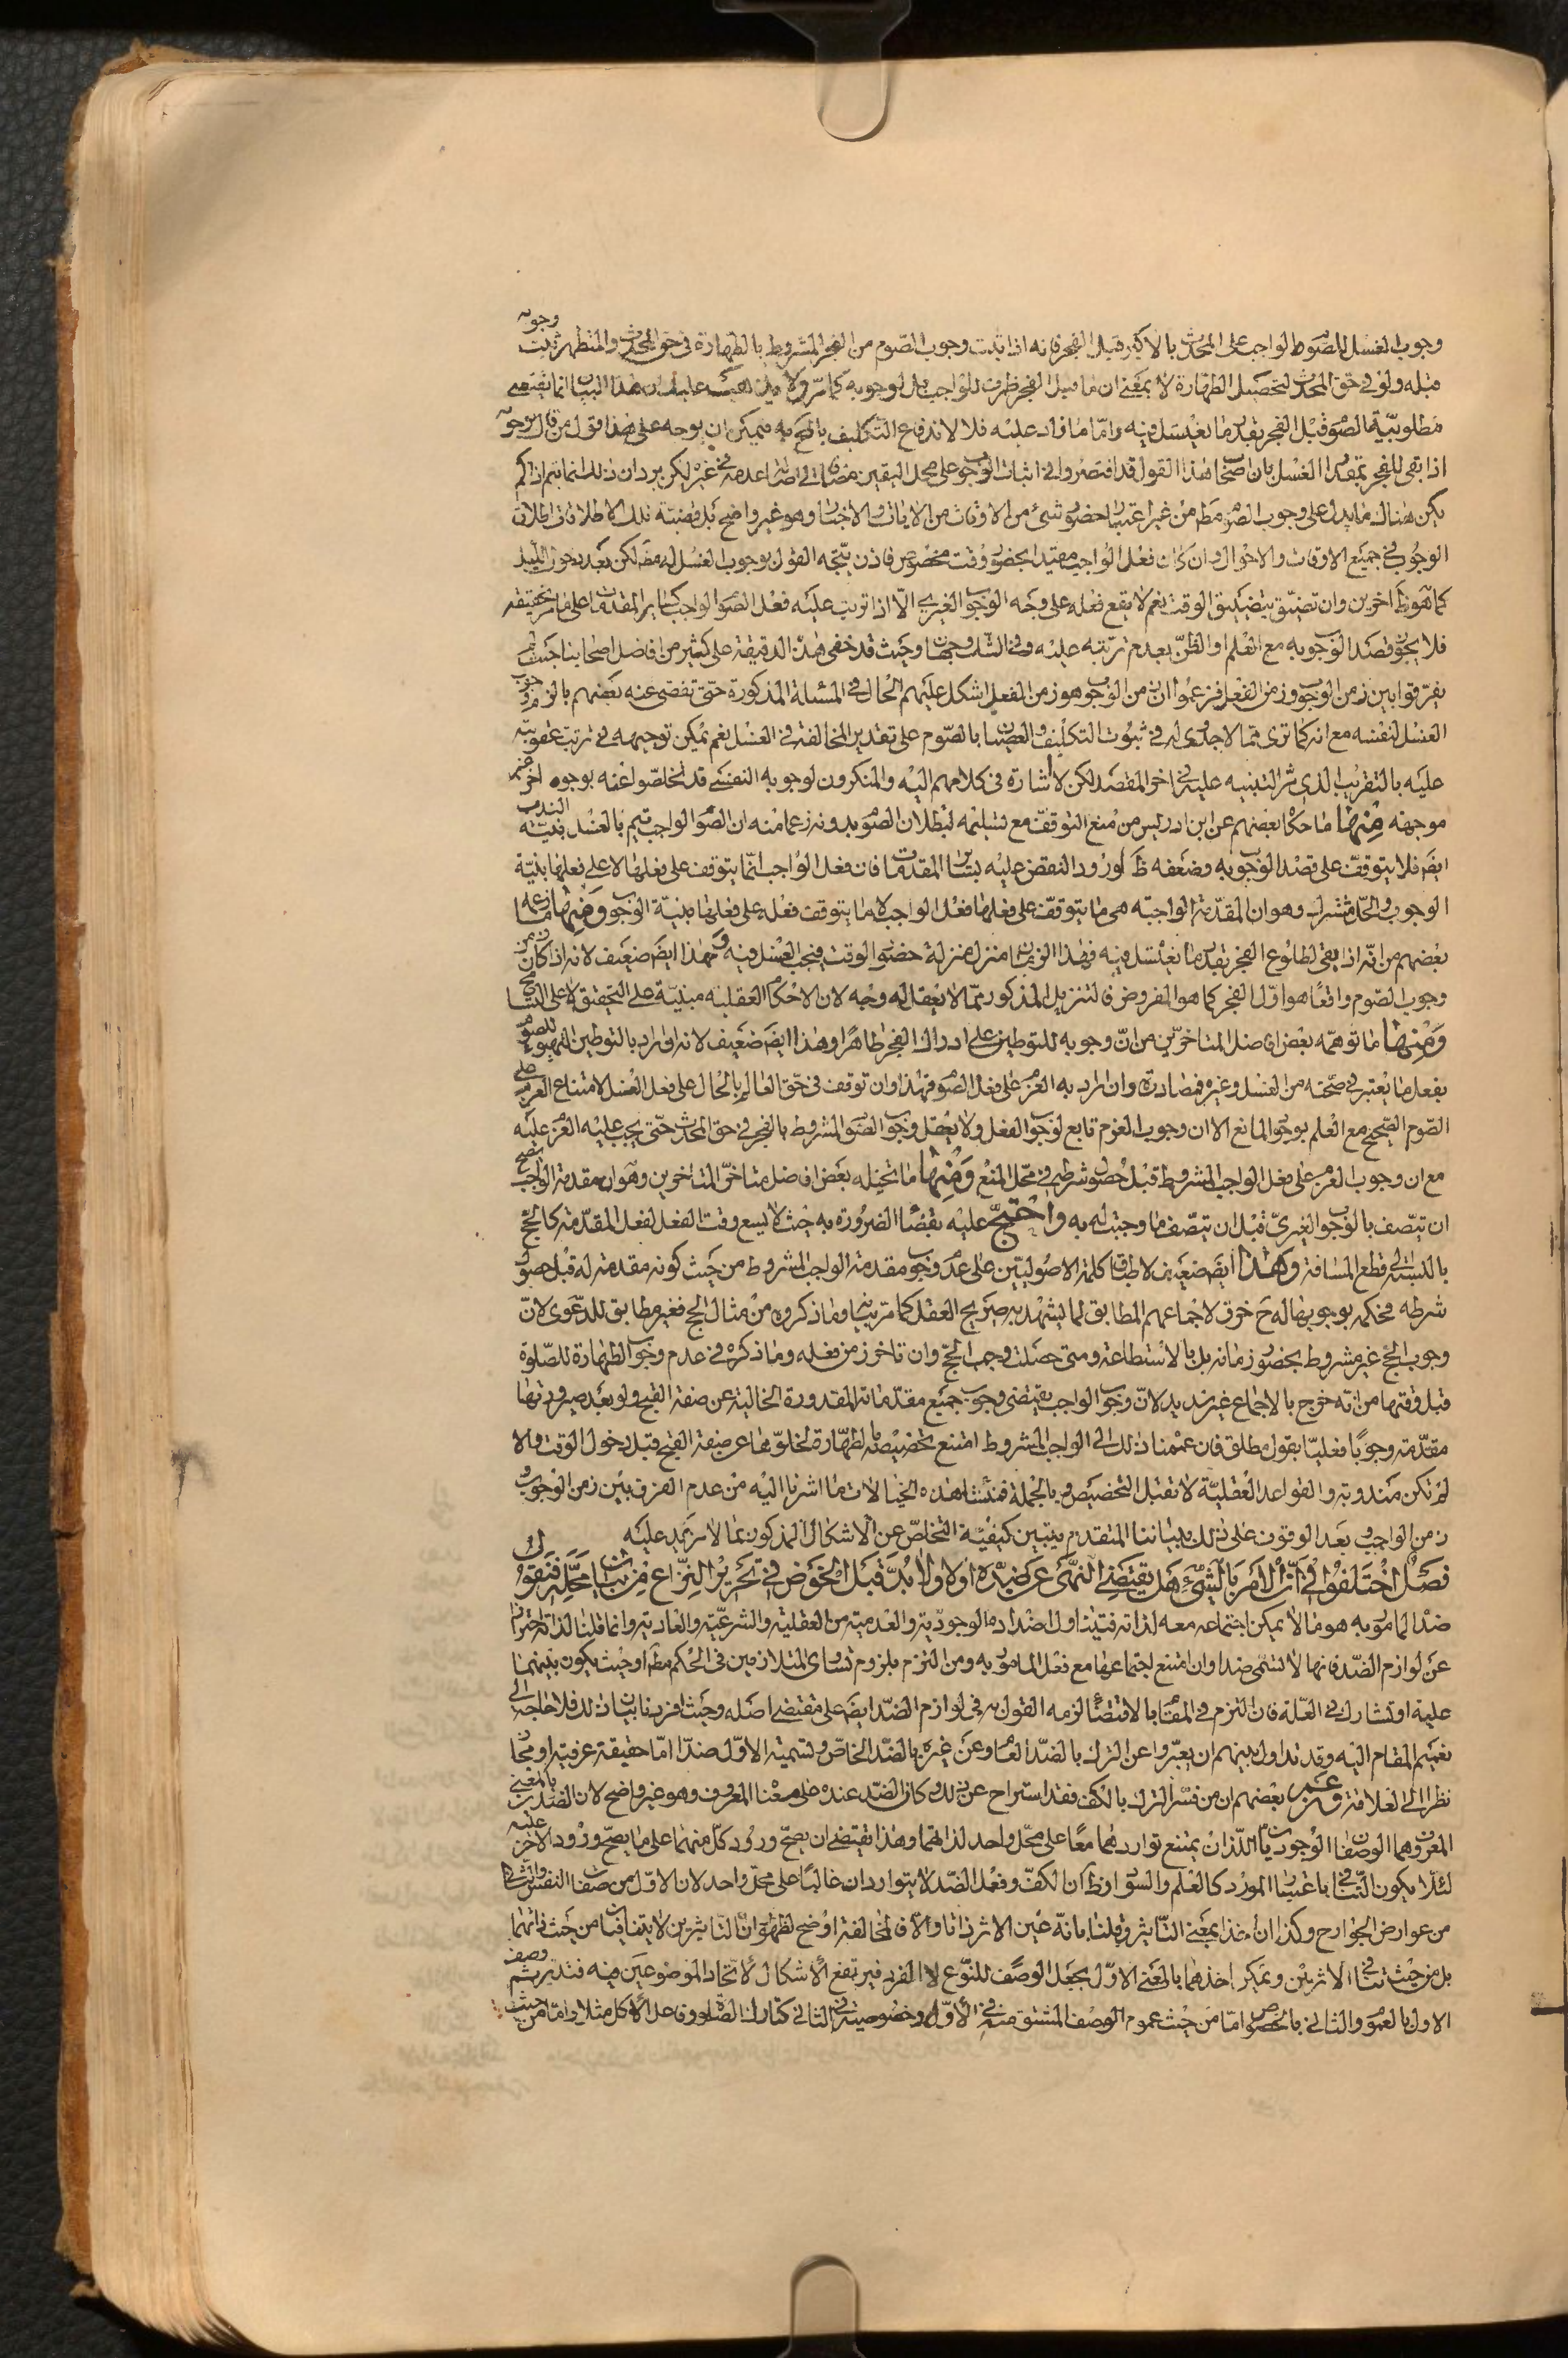 وجوب الغسل للصوم الواجب على المحدث بالاكبر قبل الفجر فانه اذا ثبت وجوب الصوم من الفجر المشروط بالطهارة فى حق المحدث والمتطهر ثبت وجوبه
قبله ولو فى حق المحدث لتحصيل الطهارة لا بمعنى ان ما قبل الفجر ظرف للواجب بل لوجوبه كما مر ولا عليك ان هذا البيان انما يقتضى
مطلوبية الصوم قبل الفجر بقدر ما يغتسل فيه واما ما زاد عليه فلا لاندفاع التكليف بالمح به فيمكن ان يوجه على هذا قول من قال بوجوبه
اذا بقى للفجر بمقدار الغسل بان اصحاب هذا القول قد اقتصروا فى اثبات الوجوب على محل اليقين مضافا الى اصالة عدمه فى غيره لكن يرد ان ذلك انما يتم اذا لم
يكن هناك ما يدل على وجوب الصوم مط من غير اعتبار حضور شىء من الاوقات من الايات والاخبار وهو غير واضح بل قضية تلك الاطلاقات اطلاق
الوجوب فى جميع الاوقات والاحوال وان كان فعل الواجب مقيدا بحضور وقت مخصوص فاذن يتجه القول بوجوب الغسل له مط لكن بعد دخول الليل
كما هو ظ آخرين وان تضيق بتضيق الوقت نعم لا يقع فعله على وجه الوجوب الغيرى الا اذا ترتب عليه فعل الصوم الواجب كساير المقدمات على ما مر تحقيقه
فلا يجوز قصد الوجوب به مع العلم او الظن بعدم ترتبه عليه وفى الشك وجهان وحيث قد خفى هذه الدقيقة على كثير من افاضل اصحابنا حيث لم
يفرقوا بين زمن الوجوب وزمن الفعل فزعموا ان زمن الوجوب هو زمن الفعل اشكل عليهم الحال فى المسئلة المذكورة حتى تفصى عنه بعضهم بالتزام وجوب
الغسل لنفسه مع انه كما ترى مما لا جدوى له فى ثبوت التكليف والعصيان بالصوم على تقدير المخالفة فى الغسل نعم يمكن توجيهه فى ترتب عقوبته
عليه بالتقريب الذى مر التنبيه عليه فى آخر المقصد لكن لا اشارة فى كلامهم اليه والمنكرون لوجوبه النفسى قد تخلصوا عنه بوجوه اخر غير
موجهة منها ما حكاه بعضهم عن ابن ادريس من منع التوقف مع تسليمه لبطلان الصوم بدونه زعما منه ان الصوم الواجب يتم بالغسل بنية الندب
ايض فلا يتوقف على قصد الوجوب به وضعفه ظ لورود النقض عليه بساير المقدمات فان فعل الواجب انما يتوقف على فعلها لا على فعلها بنية
الوجوب والحل مشترك وهو ان المقدمة الواجبة هى ما يتوقف على فعلها فعل الواجب لا ما يتوقف فعله على فعلها بنية الوجوب ومنها ما زعمه
بعضهم من انه اذا بقى لطلوع الفجر بقدر ما يغتسل فيه فهذا الزمان منزل منزلة حضور الوقت فيجب الغسل فيه وهذا ايض ضعيف لانه اذا كان زمن
وجوب الصوم واقعا هو اول الفجر كما هو المفروض فالتنزيل المذكور مما لا يعقل له وجه لان الاحكام العقلية مبنية على التحقيق لا على التسامح
ومنها ما توهمه بعض افاضل المتاخرين من ان وجوبه للتوطين على ادراك الفجر طاهرا وهذا ايض ضعيف لانه ان اراد بالتوطين التهيؤ للصوم
بفعل ما يعتبر فى صحته من الغسل وغيره فمصادرة وان اراد به العزم على فعل الصوم فهذا وان توقف فى حق العالم بالحال على فعل الغسل لامتناع العزم على
الصوم الصحيح مع العلم بوجود المانع الا ان وجوب العزم تابع لوجوب الفعل ولا يعقل وجوب الصوم المشروط بالفجر فى حق المحدث حتى يجب عليه العزم عليه
مع ان وجوب العزم على فعل الواجب المشروط قبل حصول شرطه فى محل المنع ومنها ما تخيله بعض افاضل متاخرى المتاخرين وهو ان مقدمة الواجب يصح
ان تتصف بالوجوب الغيرى قبل ان تتصف ما وجبت له به واحتج عليه بقضاء الضرورة به حيث لا يسع وقت الفعل لفعل المقدمة كالحج
بالنسبة الى قطع المسافة وهذا ايض ضعيف لاطباق كلمة الاصوليين على عدم وجوب مقدمة الواجب المشروط من حيث كونه مقدمة له قبل حصول
شرطه فحكمه بوجوبها له ح خرق لاجماعهم المطابق لما يشهد به صريح العقل كما مر بيانه وما ذكروه من مثال الحج فغير مطابق للدعوى لان
وجوب الحج غير مشروط بحضور زمانه بل بالاستطاعة ومتى حصلت وجب الحج وان تاخر زمن فعله وما ذكره فى عدم وجوب الطهارة للصلوة
قبل وقتها من انه خرج بالاجماع غير سديد لان وجوب الواجب يقتضى وجوب جميع مقدماته المقدورة الخالية عن صفة القبح ولو بعد صيرورتها
مقدمة وجوبا فعليا بقول مطلق فان عممنا ذلك الى الواجب المشروط امتنع تخصيصه بالطهارة لخلوها عن صفة القبح قبل دخول الوقت والا
لم تكن مندوبة والقواعد العقلية لا تقبل التخصيص وبالجملة فمنشا هذه الخيالات ما اشرنا اليه من عدم الفرق بين زمن الوجوب و
زمن الواجب وبعد الوقوف على ذلك وبياننا المتقدم يتبين كيفية التخلص عن الاشكال المذكور بما لا مزيد عليه
فصل اختلفوا فى ان الامر بالشىء هل يقتضى النهى عن ضده اولا ولا بد قبل الخوض فى تحرير النزاع من بيان محله فنقول
ضد المامور به هو ما لا يمكن اجتماعه معه لذاته فيتناول اضداده الوجودية والعدمية من العقلية والشرعية والعادية وانما قلنا لذاته احترازا
عن لوازم الضد فانها لا تسمى ضدا وان امتنع اجتماعها مع فعل المامور به ومن التزم بلزوم تساوى المتلازمين فى الحكم مط او حيث يكون بينهما
علية او تشارك فى العلة فان التزم فى المقام بالاقتضاء لزمه القول به فى لوازم الضد ايض على مقتضى اصله وحيث افردنا بيان ذلك فلا حاجة الى
تعميم المقام اليه وقد تداول بينهم ان يعبروا عن الترك بالضد العام وعن غيره بالضد الخاص وتسمية الاول ضدا اما حقيقة عرفية او مجاز
نظرا الى العلاقة وزعم بعضهم ان من فسر الترك بالكف فقد استراح عن ذلك وكان الضد عنده على معناه المعروف وهو غير واضح لان الضدين بالمعنى
المعروف هما الوصفان الوجوديان اللذان يمتنع تواردهما معا على محل واحد لذاتهما وهذا يقتضى ان يصح ورود كل منهما على ما يصح ورود الاخر عليه
لئلا يكون التنافى باعتبار المورد كالعلم والسواد وظ ان الكف وفعل الضد لا يتواردان غالبا على محل واحد لان الاول من صفات النفس والثانى
من عوارض الجوارح وكذا ان اخذ بمعنى التاثير وقلنا بانه عين الاثر ذاتا والا فالمخالفة اوضح لظهور ان التاثيرين لا يتنافيان من حيث ذاتهما
بل من حيث تنافى الاثرين ويمكن اخذهما بالمعنى الاول بجعل الوصف للنوع لا الفرد فيرتفع الاشكال لاتحاد الموضوعين فيه فتدبر ثم وصف
الاول بالعموم والثانى بالخصوص اما من حيث عموم الوصف المشتق منه فى الاول وخصوصيته فى الثانى كتارك الصلوة وفاعل الاكل مثلا واما من حيث